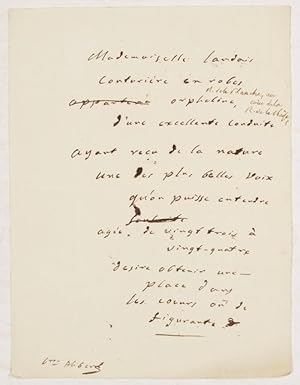 Mademoiselle Landois
Couturière en robes
appartenant orpheline,
d'une excellente conduite
ayant reçu de la nature
une des plus belles voix
qu'on puisse entendre
agée de vingt trois à
vingt-quatre
desire obtenir une
place dans
les cœurs ou de
figurante